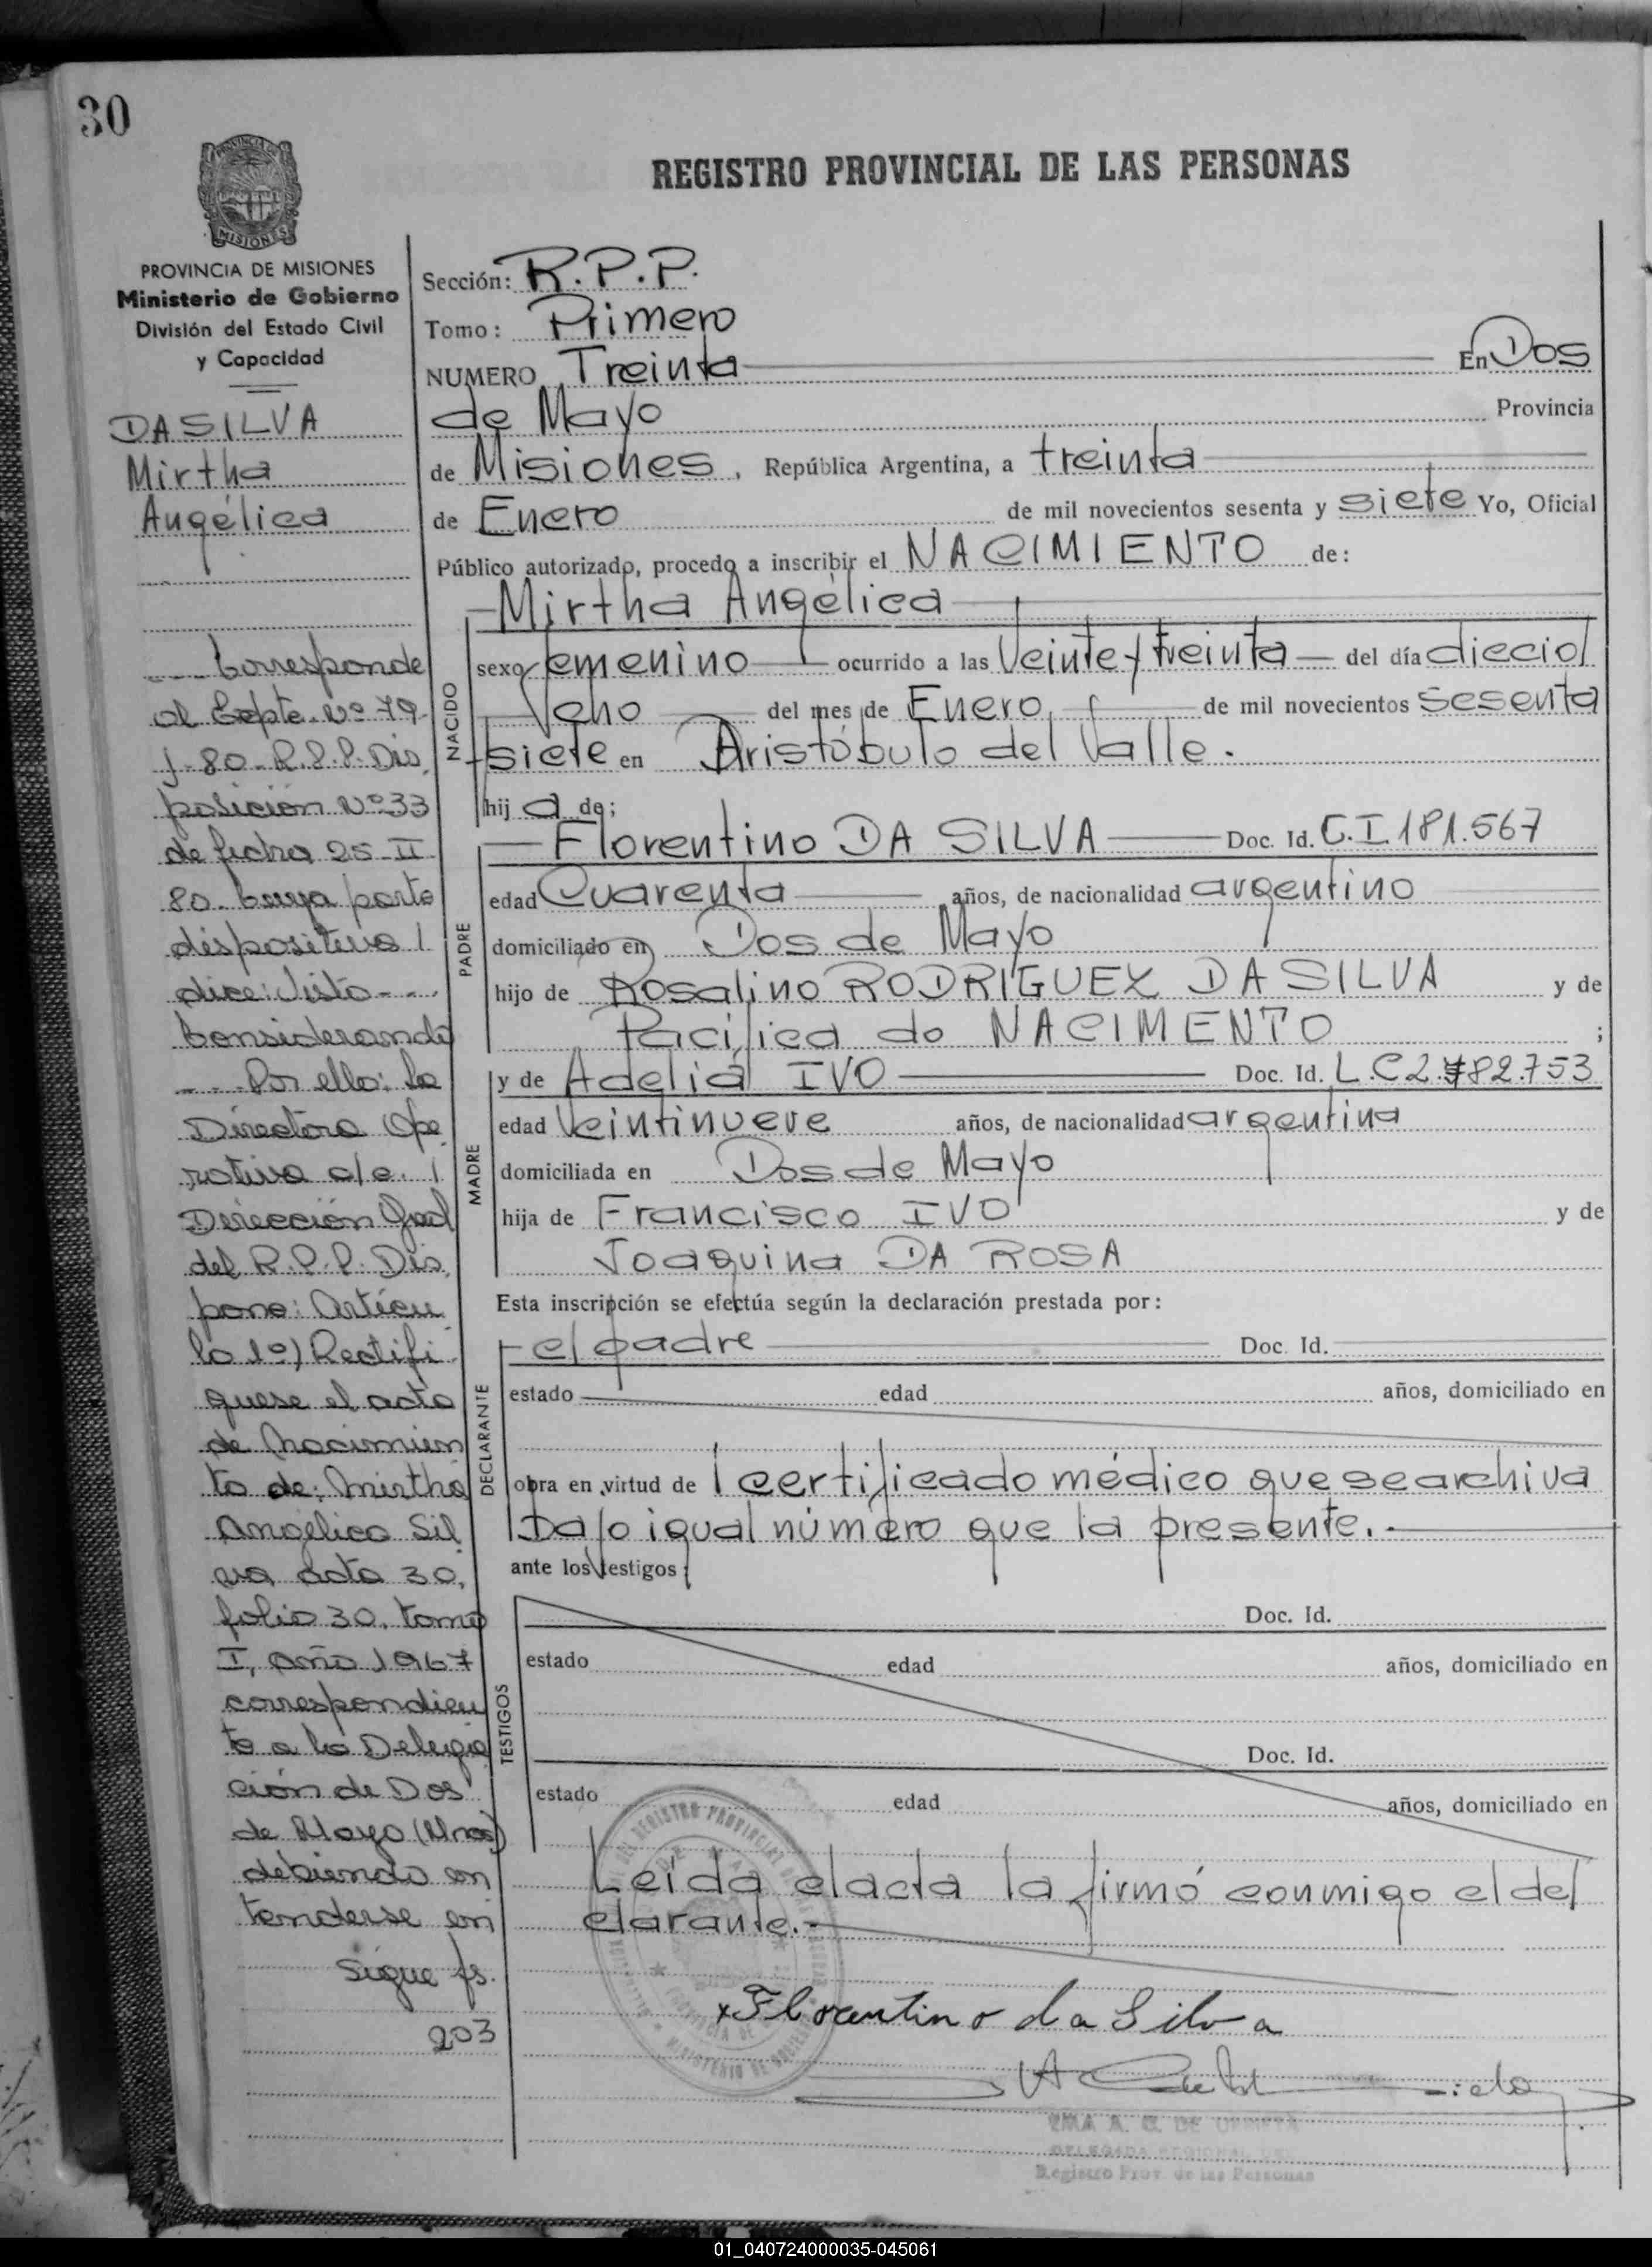 30
PROVINCIA DE
MISIONES
REGISTRO PROVINCIAL DE LAS PERSONAS
PROVINCIA DE MISIONES
Ministerio de Gobierno
División del Estado Civil
y Capacidad
DA SILVA
Mirtha
Angélica
Corresponde
al Expte. Nº 79
J-80-R.P.P. Dis
posición Nº 33
de fecha 25-II
80. Cuya parte
dispositiva
dice: Visto - - -
Considerando
- - - Por ello: La
Directora Ope
rativa a/c.
Dirección Gral
del R.P.P. Dis
pone: Artícu
lo 1º) Rectifí
quese el acta
de Nacimien
to de: Mirtha
Angelica Sil
va acta 30,
folio 30, tomo
I, año 1967
correspondien
te a la Delega
ción de Dos
de Mayo (Mnes)
debiendo en
tenderse en
Sigue fs.
203
Sección: R.P.P.
Tomo: Primero
NUMERO Treinta En Dos
de Mayo Provincia
de Misiones, República Argentina, a treinta
de Enero de mil novecientos sesenta y siete Yo, Oficial
Público autorizado, procedo a inscribir el NACIMIENTO de:
NACIDO
Mirtha Angélica
sexo femenino ocurrido a las Veinte y treinta del día diecio
cho del mes de Enero de mil novecientos sesenta
siete en Aristóbulo del Valle.
hij a de;
PADRE
Florentino DA SILVA Doc. Id. C.I 181.567
edad Cuarenta años, de nacionalidad argentino
domiciliado en Dos de Mayo
hijo de Rosalino RODRIGUEZ DA SILVA y de
Pacífica do NACIMENTO ;
MADRE
y de Adelia IVO Doc. Id. L.C 2.782.753
edad Veintinueve años, de nacionalidad argentina
domiciliada en Dos de Mayo
hija de Francisco IVO y de
Joaquina DA ROSA
Esta inscripción se efectúa según la declaración prestada por:
DECLARANTE
el padre Doc. Id.
estado edad años, domiciliado en
obra en virtud de l certificado médico que se archiva
bajo igual número que la presente.-
ante los testigos:
TESTIGOS
Doc. Id.
estado edad años, domiciliado en
Doc. Id.
estado edad años, domiciliado en
Leída el acta la firmó conmigo el de
clarante.-
x Florentino da Silva
DELEGADA REGIONAL
Registro Prov. de las Personas
01_040724000035-045061